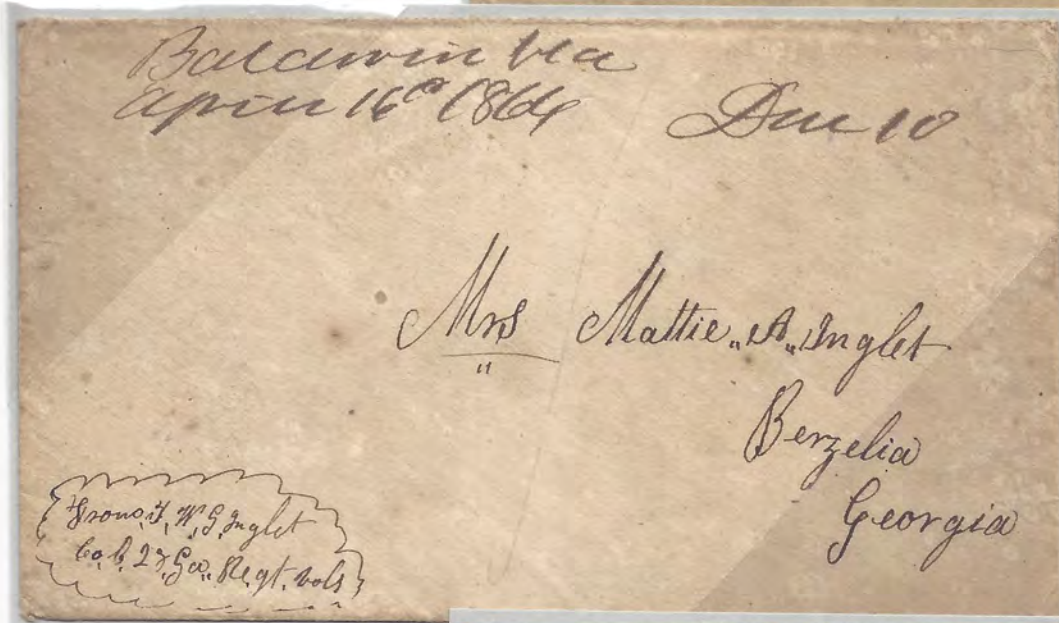 Baldwin Fla
April 16th 1864 Due 10
Mrs Mattie „A„ Inglet
Berzelia
Georgia
From W. G. Inglet
Co, C, 28 Ga,, Regt. vols